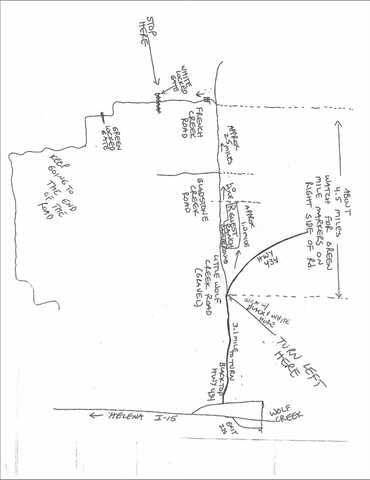 STOP
HERE
WHITE
LOCKED
GATE
FRENCH
CREEK
ROAD
GREEN
LOCKED
GATE
KEEP
GOING TO
THE END
OF THE
ROAD
APPROX
2.5 MILES
GLADSTONE
CREEK
ROAD
APPROX
ABOUT
4.5 MILES
WATCH FOR GREEN
MILE MARKERS ON
RIGHT SIDE OF RD.
LITTLE WOLF
CREEK ROAD
(GRAVEL)
HWY
434
SIGN W/
BLACK & WHITE
TURN LEFT
HERE
3.1 MILE TO TURN
BLACKTOP
HWY 434
WOLF
CREEK
EXIT
HELENA I-15